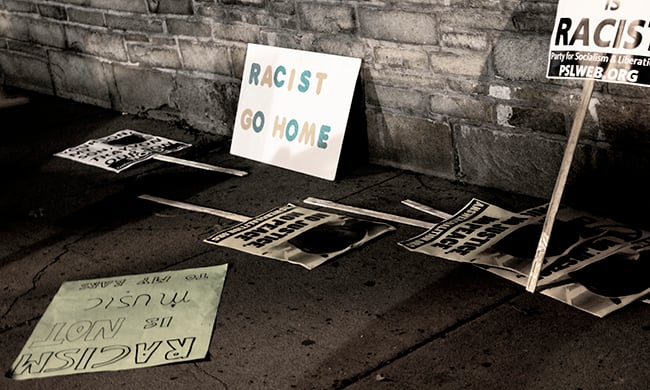 RACIST
GO HOME
IS
RACIST
Party for Socialism & Liberation
PSLWEB.ORG
NO JUSTICE
NO PEACE
NO JUSTICE
NO PEACE
RACISM
IS NOT
MUSIC
TO MY EARS